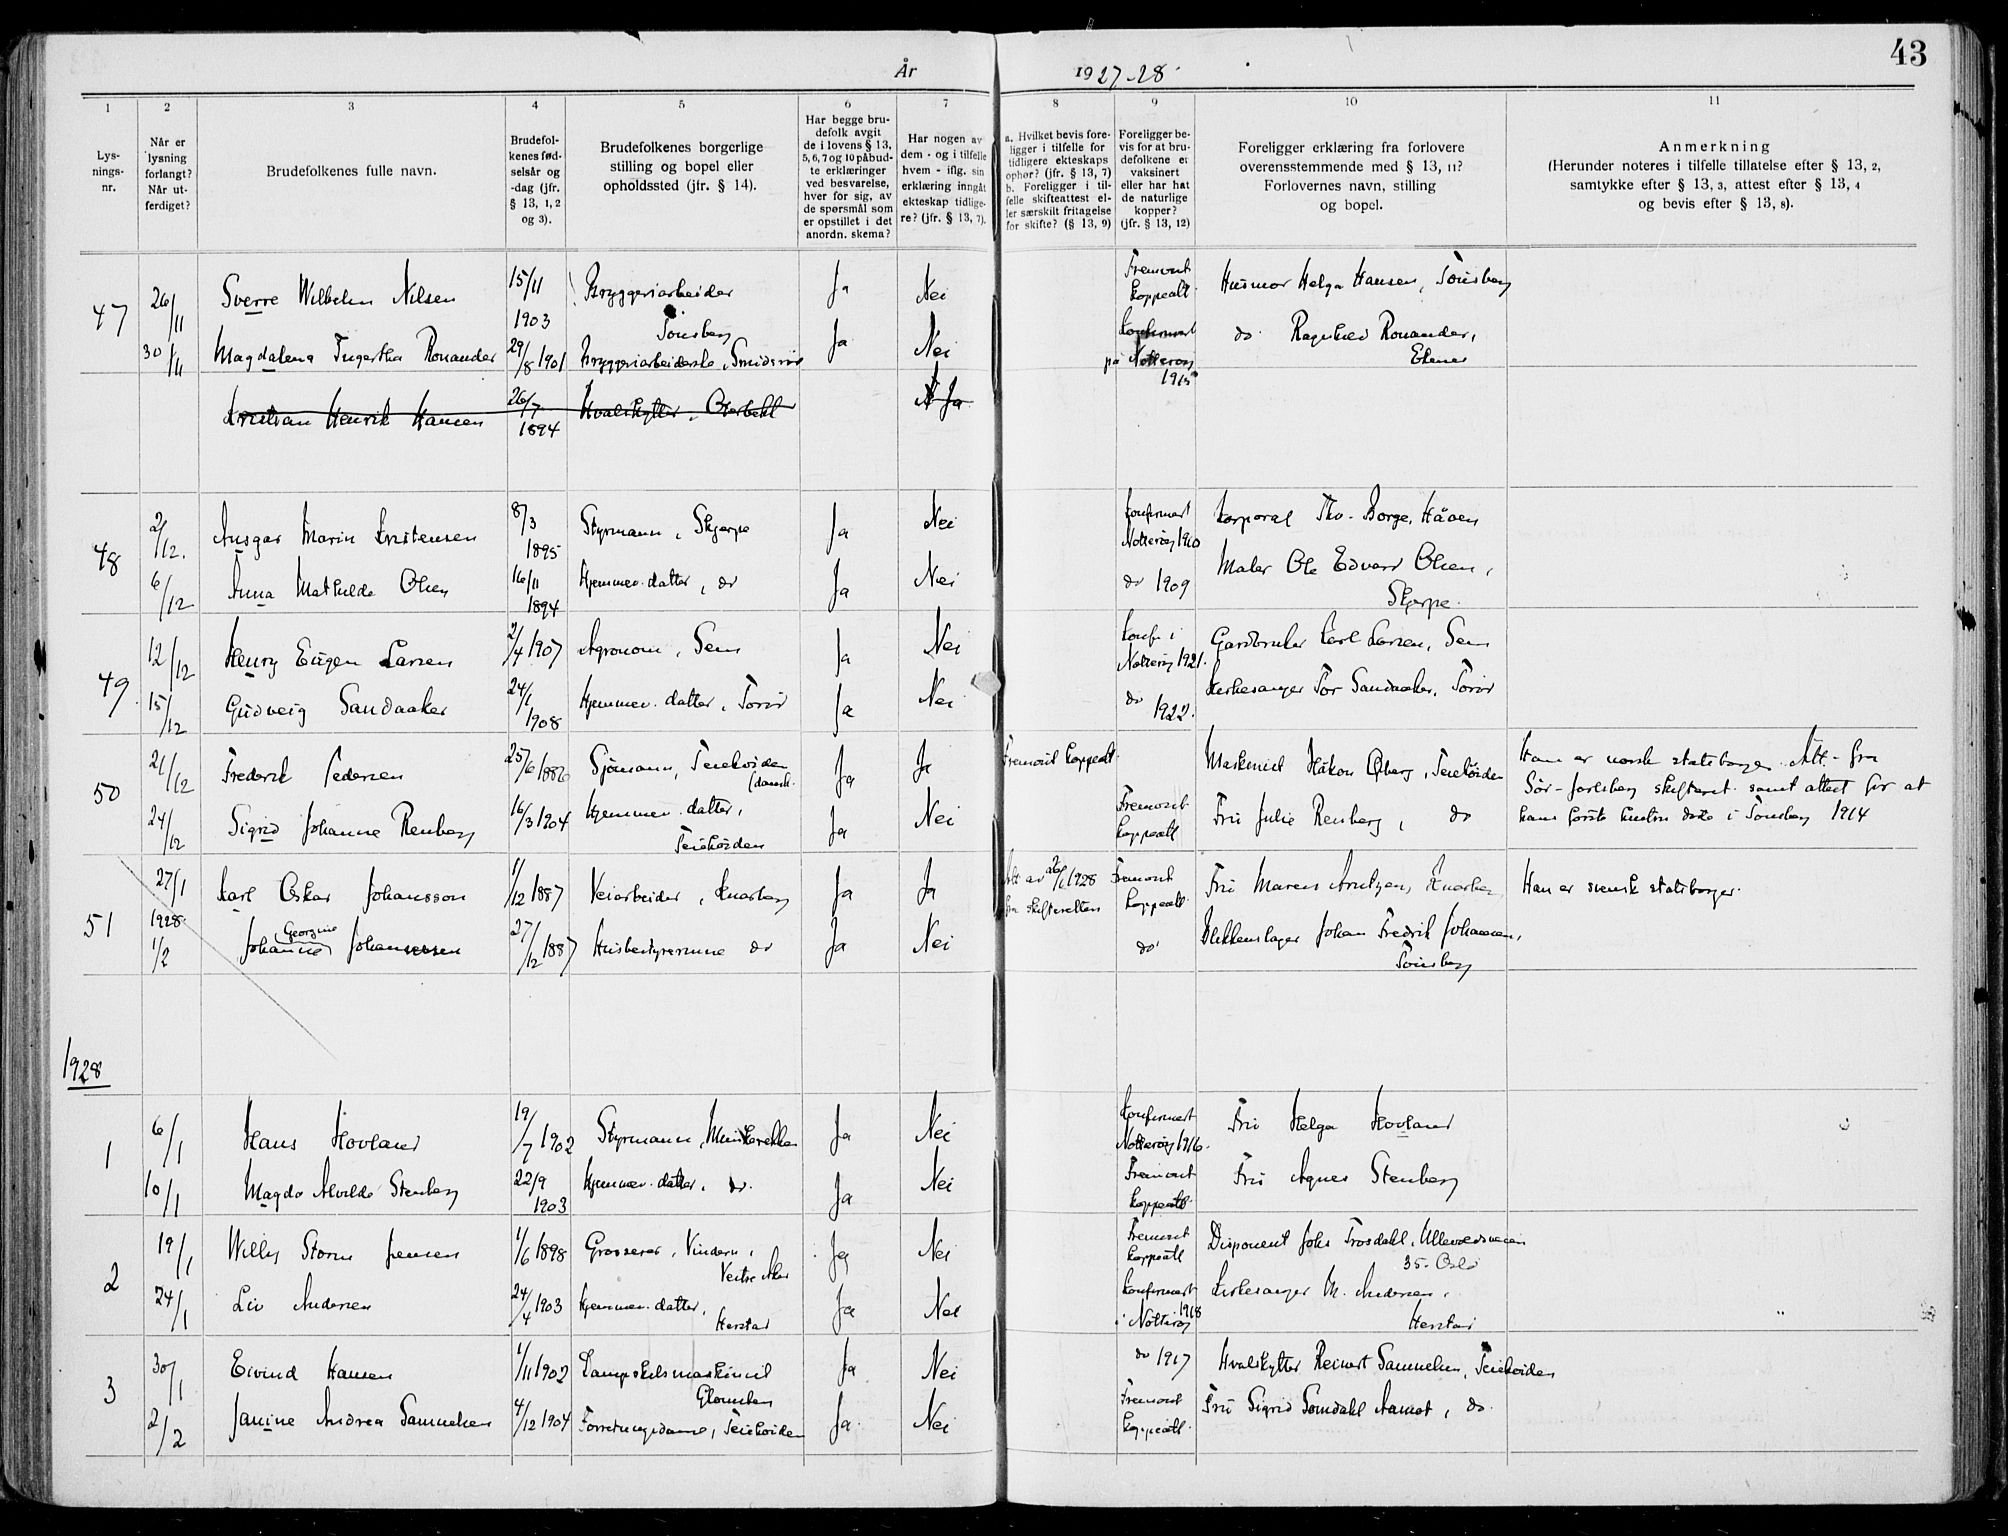 43
År 1927-28
1 2 3 4 5 6 7 8 9 10 11
Lysningsnr.
Når er lysning forlangt? Når utferdiget?
Brudefolkenes fulle navn.
Brudefolkenes fødselsår og -dag (jfr. § 13, 1, 2 og 3).
Brudefolkenes borgerlige stilling og bopel eller opholdssted (jfr. § 14).
Har begge brudefolk avgit de i lovens § 13, 5, 6, 7 og 10 påbudte erklæringer ved besvarelse, hver for sig, av de spørsmål som er opstillet i det anordn. skema?
Har nogen av dem - og i tilfelle hvem - iflg. sin erklæring inngåt ekteskap tidligere? (jfr. § 13, 7).
a. Hvilket bevis foreligger i tilfelle for tidligere ekteskaps ophør? (§ 13, 7)
b. Foreligger i tilfelle skifteattest eller særskilt fritagelse for skifte? (§ 13, 9)
Foreligger bevis for at brudefolkene er vaksinert eller har hat de naturlige kopper? (jfr. § 13, 12)
Foreligger erklæring fra forlovere overensstemmende med § 13, 11? Forlovernes navn, stilling og bopel.
Anmerkning
(Herunder noteres i tilfelle tillatelse efter § 13, 2, samtykke efter § 13, 3, attest efter § 13, 4 og bevis efter § 13, 8).
47 26/11 Sverre Wilhelm Nilsen 15/11 1903 Bryggeriarbeider Tønsberg Ja Nei Fremvist koppeatt. Husmor Helga Hansen, Tønsberg
30/11 Magdalena Ingertha Ronander 29/8 1901 Bryggeriarbeiderske, Smidsrød Ja Nei Konfirmert på Nøtterøy 1915 do. Ragnhild Ronander, Ekenes
Kristian Henrik Hansen 26/7 1894 Hvalskytter, Oterbekk Ja
48 2/12. Ansgar Marin Kristensen 8/3 1895 Styrmann, Skjerpe Ja Nei Konfirmert Nøtterøy 1910 Korporal Thv. Borge, Håven
6/12 Anna Mathilde Olsen 16/11 1894 Hjemmev. datter, do Ja Nei do 1909 Maler Ole Edvard Olsen, Skjerpe.
49 12/12 Henry Eugen Larsen 2/4 1907 Agronom, Sem Ja Nei Konf. i Nøtterøy 1921. Gardbruker Karl Larsen, Sem
15/12 Gudveig Sandaaker 24/1 1908 Hjemmev. datter, Torød Ja Nei do 1922. Kirkesanger Tor Sandaaker, Torød
50 21/12 Fredrik Pedersen 25/6 1886 Sjømann, Teiehøiden (dansk. Ja Ja Fremvist koppeatt. Maskinist Håkon Øberg, Teiehøiden Han er norsk statsborger. Att. fra
Sør-Jarlsberg skifterett samt attest for at
hans første hustru døde i Tønsberg 1914
24/12 Sigrid Johanne Renberg 16/3 1904 Hjemmev. datter, Teiehøiden Ja Nei Fremvist koppeatt Fru Julie Renberg, do
51 27/1 1928 Karl Oskar Johansson 1/12 1887 Veiarbeider, Knarberg Ja Ja Att av 26/1 1928 fra skifteretten Fremvist koppeatt. Fru Maren Arntzen, Knarberg Han er svensk statsborger.
1/2 Johanne Georgine Johannessen 27/12 1887 Husbestyrerinne do Ja Nei do. Blikkenslager Johan Fredrik Johansen, Tønsberg
1928
1 6/1 Hans Hovland 19/7 1902 Styrmann, Munkerekken Ja Nei Konfirmert Nøtterøy 1916. Fru Helga Hovland
10/1 Magda Alvilde Stenberg 22/9 1903 Hjemmev. datter, do. Ja Nei Fremvist koppeatt. Fru Agnes Stenberg
2 19/1 Willy Storm Jensen 1/6 1898 Grosserer, Vinderen, Vestre Aker Ja Nei Fremvist koppeatt Disponent Johs Trosdahl, Ullevoldsveien 35. Oslo
24/1 Liv Andersen 24/4 1903 Hjemmev. datter, Herstad Ja Nei Konfirmert i Nøtterøy 1918 Kirkesanger M. Andersen, Herstad
3 30/1 Eivind Hansen 1/11 1902 Dampskibsmaskinist Glomsten Ja Nei do 1917 Hvalskytter Reinert Samuelsen, Teiehøiden
2/2 Janine Andrea Samuelsen 4/12 1904 Forretningsdame, Teiehøiden Ja Nei Fremvist koppeatt. Fru Sigrid Somdahl Aamot, do.